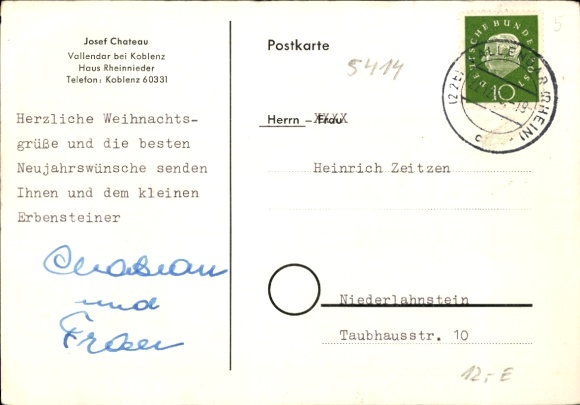 Josef Chateau
Vallendar bei Koblenz
Haus Rheinnieder
Telefon: Koblenz 60331
Herzliche Weihnachts-
grüße und die besten
Neujahrswünsche senden
Ihnen und dem kleinen
Erbensteiner
Chateau
und
Frau
Postkarte
5414
5
DEUTSCHE BUNDESPOST
10
VALLENDAR (RHEIN)
Herrn – Frau
XXXX
Heinrich Zeitzen
Niederlahnstein
Taubhausstr. 10
12,- E